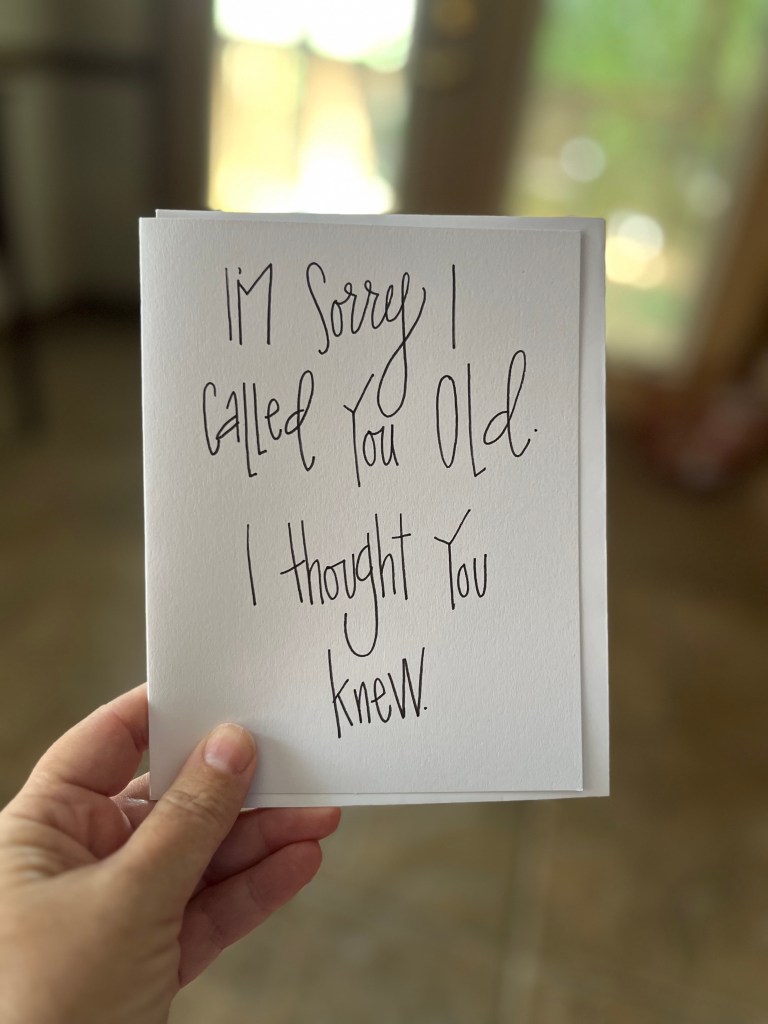 I'M Sorry I
Called You Old.
I thought You
knew.